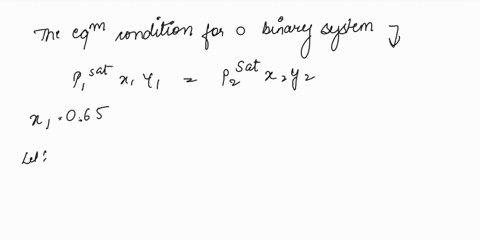 The eqᵐ condition for a binary system
P₁ˢᵃᵗ x₁ γ₁ = P₂ˢᵃᵗ x₂ γ₂
x₁ . 0.65
Let: